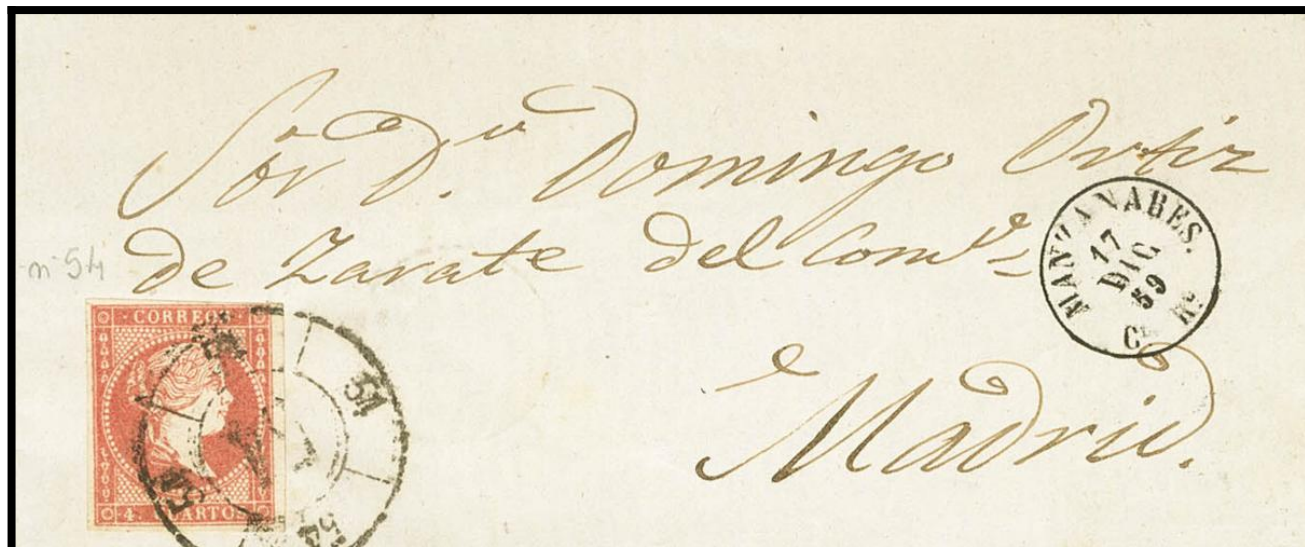 Sor. Dn. Domingo Ortiz
de Zarate del Como.
MANZANARES.
17
DIC
59
Cd Rl
nº 54
CORREOS
4. CUARTOS
51
Madrid.